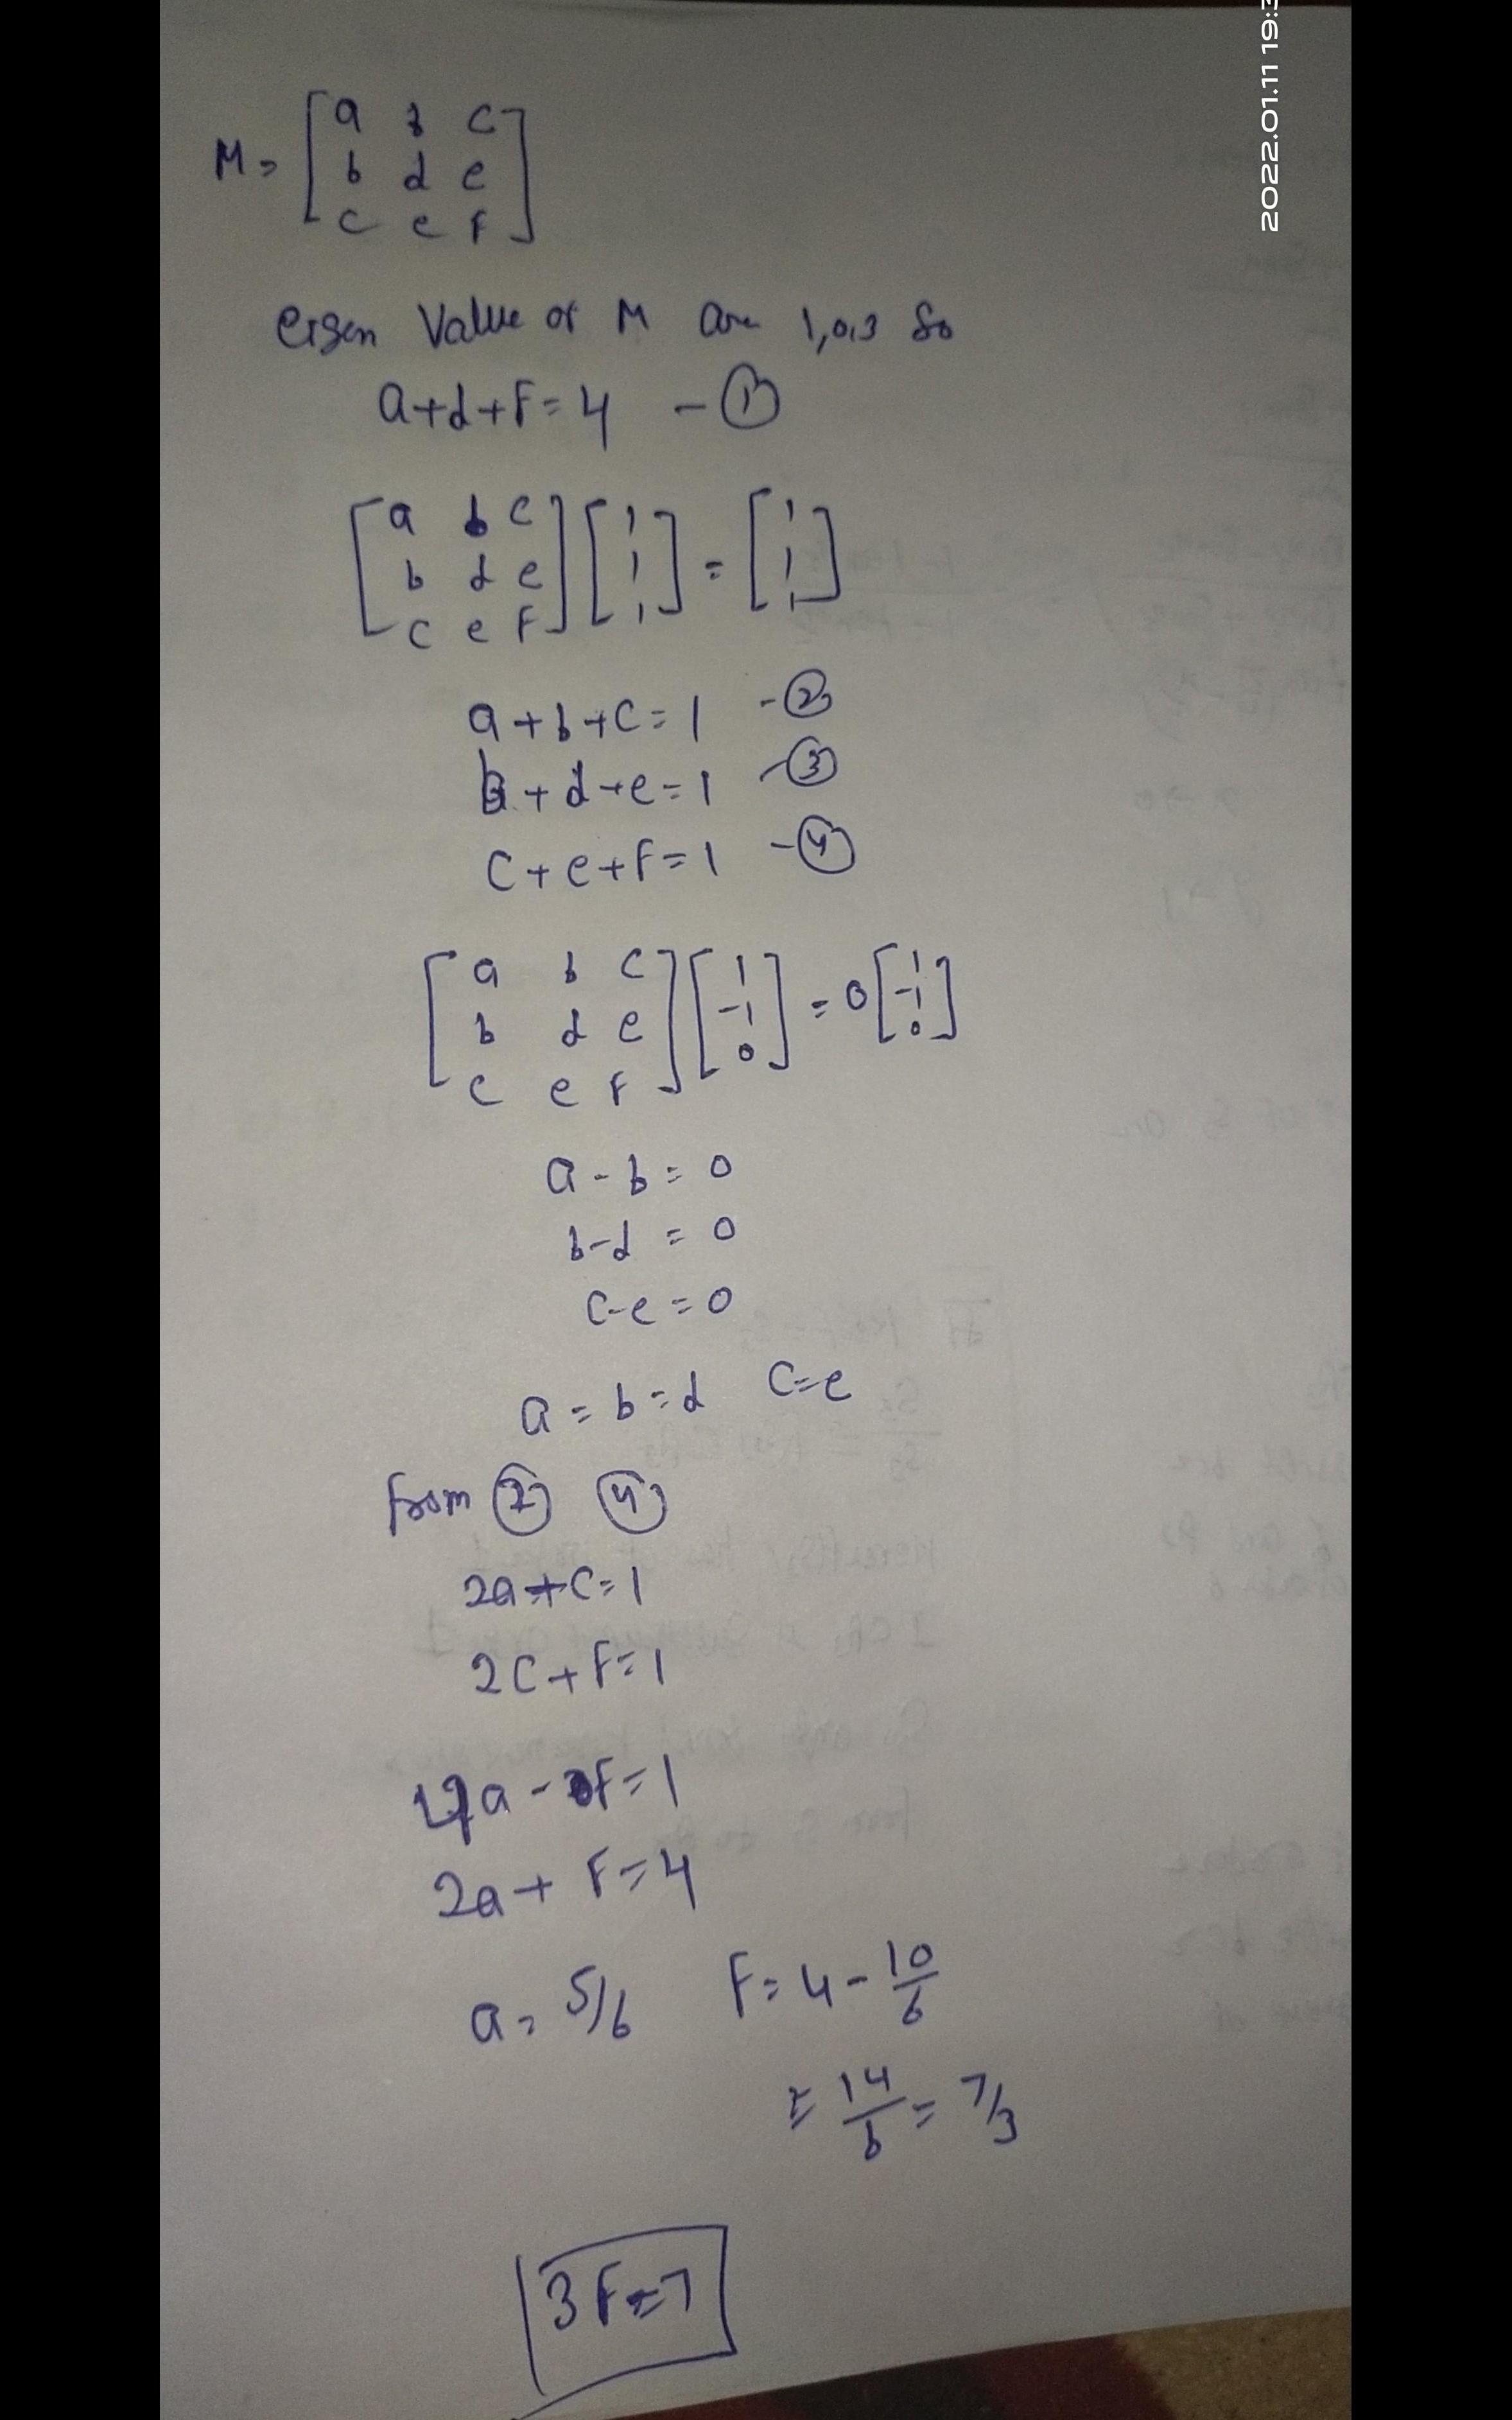 2022.01.11 19:3
M = [ a b c
b d e
c e F ]
eigen Value of M are 1,0,3 So
a+d+F=4 - ①
[ a b c
b d e
c e F ] [ 1
1
1 ] = [ 1
1
1 ]
a+b+c=1 - ②
b+d+e=1 - ③
c+e+F=1 - ④
[ a b c
b d e
c e F ] [ 1
-1
0 ] = 0 [ 1
-1
0 ]
a-b=0
b-d=0
c-e=0
a=b=d c=e
from ② ④
2a+c=1
2c+F=1
4a-F=1
2a+F=4
a=5/6 F=4-10/6
=14/6=7/3
3F=7